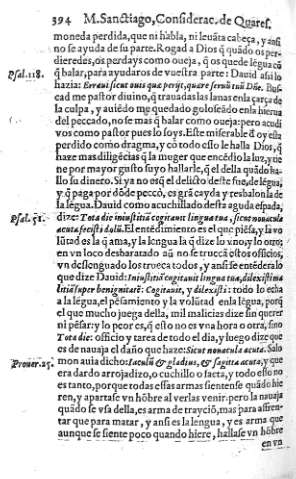 394 M. Sanctiago, Considerac. de Quares.
moneda perdida, que ni habla, ni leuãta cabeça, y ansi
no se ayuda de su parte. Rogad a Dios q̃ quãdo os per-
dieredes, os perdays como oueja, q̃ os quede lẽgua cõ
Psal. 118. q̃ balar, para ayudaros de vuestra parte: Dauid asi lo
hazia: Erraui sicut ouis quæ perijt, quære seruũ tuũ Dñe. Bus
cad me pastor diuino, q̃ trauadas las lanas en la çarça de
la culpa, y auiẽdo me quedado goloseãdo en la hierua
del peccado, no se mas q̃ balar como oueja: pero acudi
vos como pastor pues lo soys. Este miserable q̃ oy esta
perdido como dragma, y cõ todo esso le halla Dios, q̃
haze mas diligẽcias q̃ la muger que encẽdio la luz, y tie
ne por mayor gusto suyo hallarle, q̃ el della quãdo ha-
llo su dinero. Si ya no es q̃ el delicto deste fue, de lẽgua,
y q̃ paga por dõde peccò, es grã cayda y resbalon la de
la lẽgua. Dauid como acuchillado desta aguda espada,
Psal. 51. dize: Tota die iniustitiã cogitauit lingua tua, sicut nouacula
acuta fecisti dolũ. El entẽdimiento es el que piẽsa, y la vo
lũtad es la q̃ ama, y la lengua la q̃ dize lo vno, y lo otro;
en vn loco desbaratado aũ no se truecã estos officios,
vn deslenguado los trueca todos, y ansi se ha de entẽderlo
que dize Dauid: Iniustitiã cogitauit lingua tua, dilexisti ma
litiã super benignitatẽ: Cogitauit, y dilexisti: todo lo echa
a la lẽgua, el pẽsamiento y la volũtad enla lengua, porq̃
el que mucho juega della, mil malicias dize sin querer
ni pẽsar: y lo peor es, q̃ esto no es vna hora o otra, sino
Tota die: officio y tarea de todo el dia, y luego dize que
es de nauaja el daño que haze: Sicut nouacula acuta. Salo
Prouer. 25. mon auia dicho: Iaculũ & gladius, & sagitta acuta, y que
era dardo arrojadizo, o cuchillo o facta, y todo esso no
es tanto, porque todas essas armas sientense quãdo hie
ren, y apartase vn hõbre al verlas venir: pero la nauaja
quãdo se vsa della, es arma de trayciõ, mas para affren-
tar que para matar, y ansi es la lengua, y es arma que
aunque se siente poco quando hiere, hallase vn hõbre
en vn